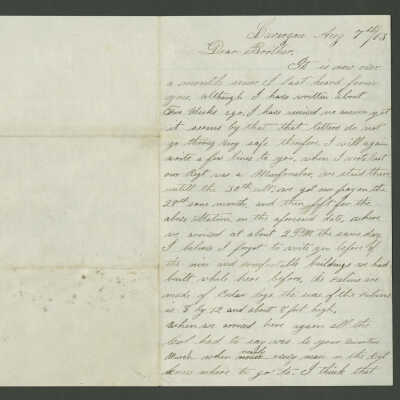 Lavergne Aug 7th/63
Dear Brother.
It is now over
a month since I last heard from
you, although I have written about
Two Weeks ago, I have received no answer yet
it seems by that that letters do not
go through very safe therefore I will again
write a few lines to you, when I wrote last
our Regt was at Murfreesboro, we staid there
untill the 30th ult. we got our pay on the
28th same month, and then left for the
above Station, on the aforesaid date, where
we arrived at about 2 P.M. the same day
I believe I forgot to write you before of
the nice and comfortable buildings we had
built while here before, the shanties are
made of Cedar logs the size of the shanties
is 8 by 12 and about 8 feet high,
When we arrived here again all the
Col. had to say was to your Quarters
March when every man in the Regt
knew where to go to. I think that